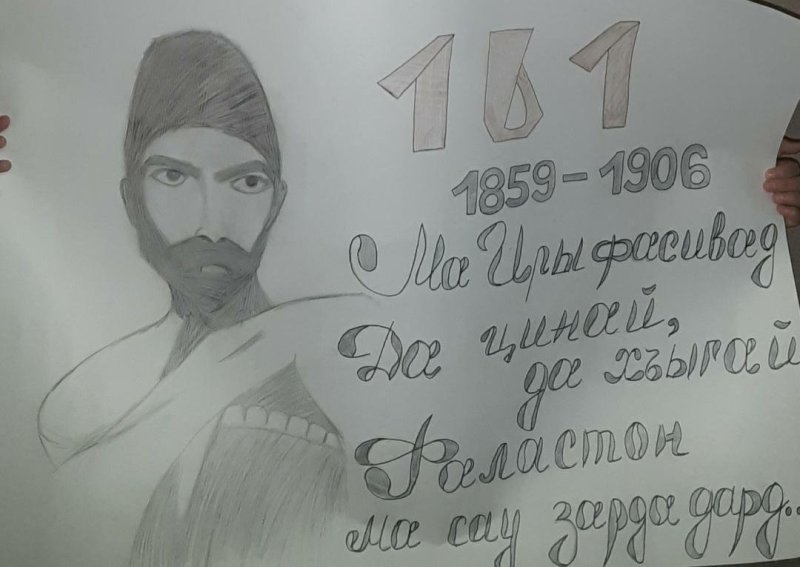 161
1859-1906
Ма Иры фасивад
Да цинай,
да хъыгай
Фаластон
ма сау зарда дард..